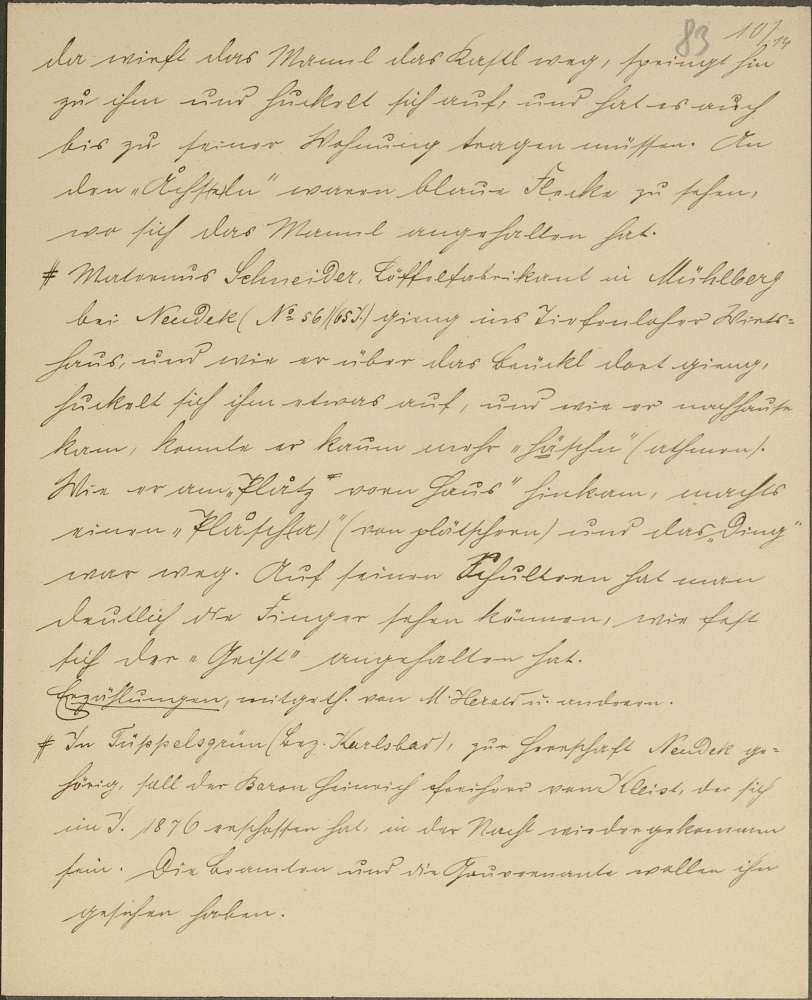 83 107/14
da wirft das Mannl das Kastl weg, springt hin
zu ihm und huckelt sich auf, und hat es auch
bis zu seiner Wohnung tragen müssen. An
den „Åchseln" waren blaue Flecke zu sehen,
wo sich das Mannl angehalten hat.
# Maternus Schneider, Löffelfabrikant in Mühlberg
bei Neudek (No 56) (65 J.) gieng ins Tiefenloher Wirts=
haus, und wie er über das Brückl dort gieng,
huckelt sich ihm etwas auf, und wie er nachhause
kam, konnte er kaum mehr „häschn" (athmen).
Wie er am „Plåtz vorn Haus" hinkam, machts
einen „Plåsch(a)" (von plätschern) und das „Ding"
war weg. Auf seinen Schultern hat man
deutlich die Finger sehen können, wie fest
sich der „Geist" angehalten hat.
Erzählungen, mitgeth. von M. Herold u. anderen.
# In Tüppelsgrün (Bez. Karlsbad), zur Herrschaft Neudek ge=
hörig, soll der Baron Heinrich Freiherr von Kleist, der sich
im J. 1876 erschossen hat, in der Nacht wiedergekommen
sein. Die Beamten und die Gouvernante wollen ihn
gesehen haben.